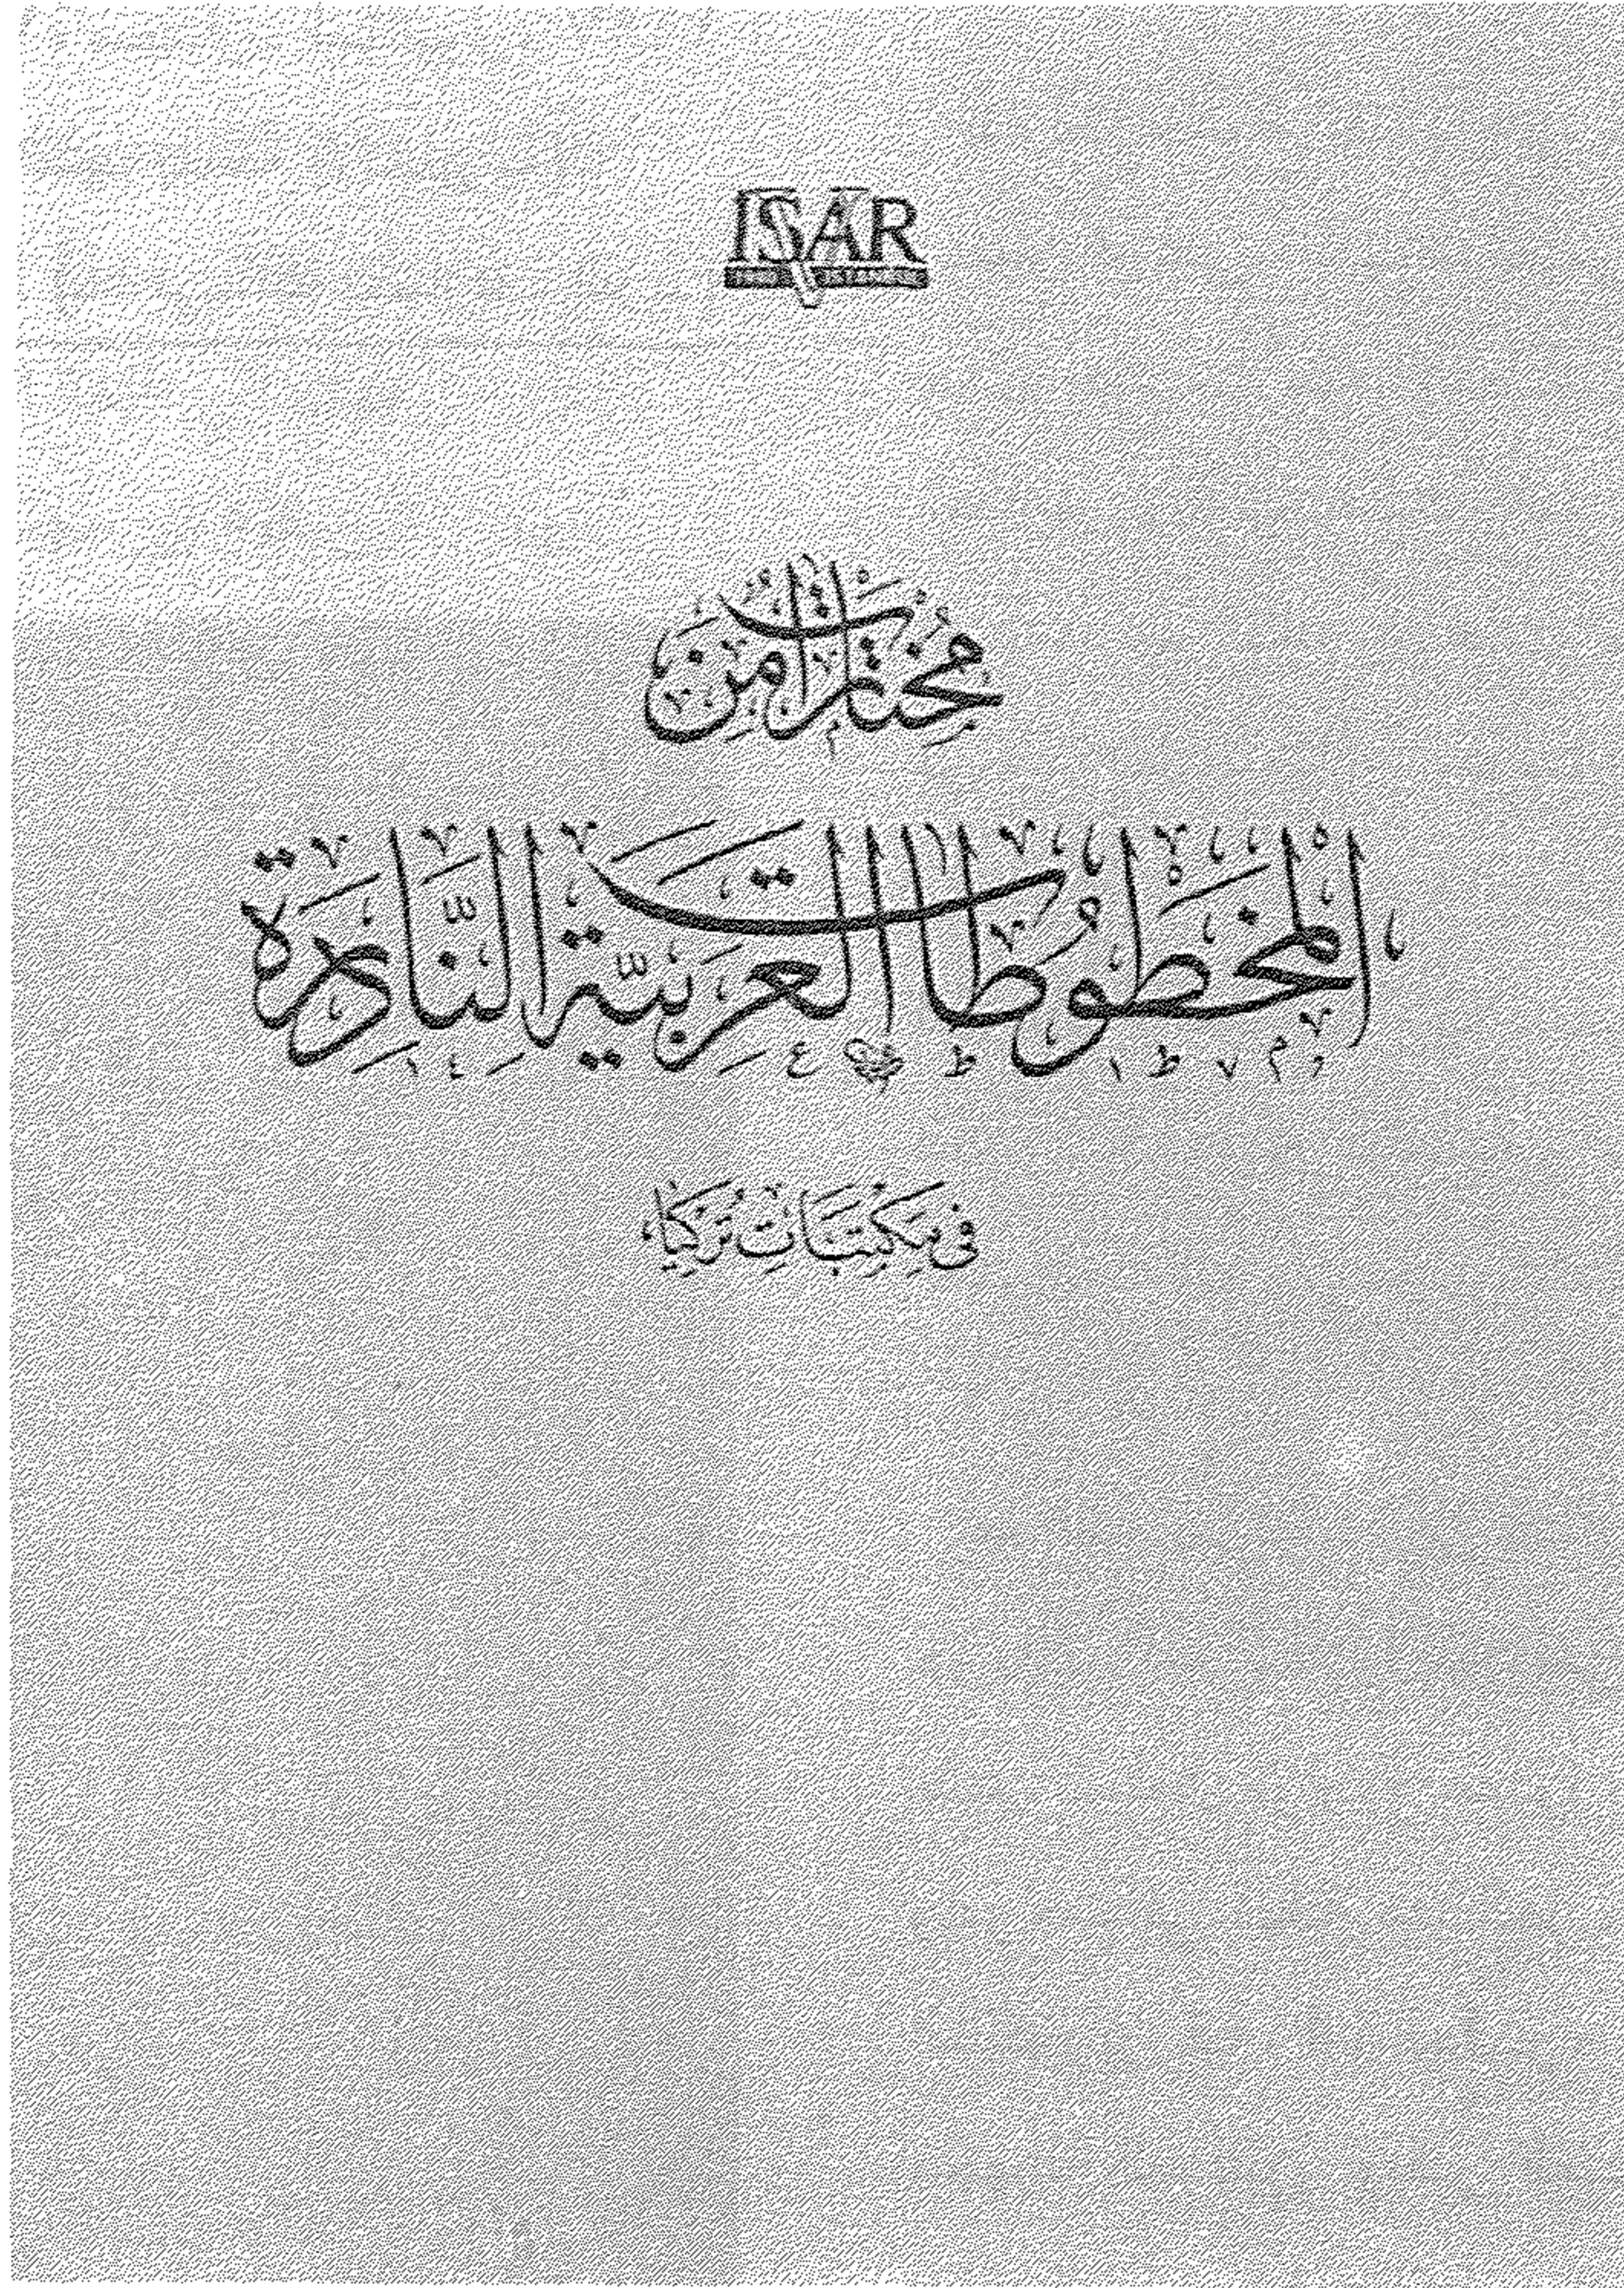 ISAR
مختارات من
المخطوطات العربية النادرة
في مكتبات تركيا